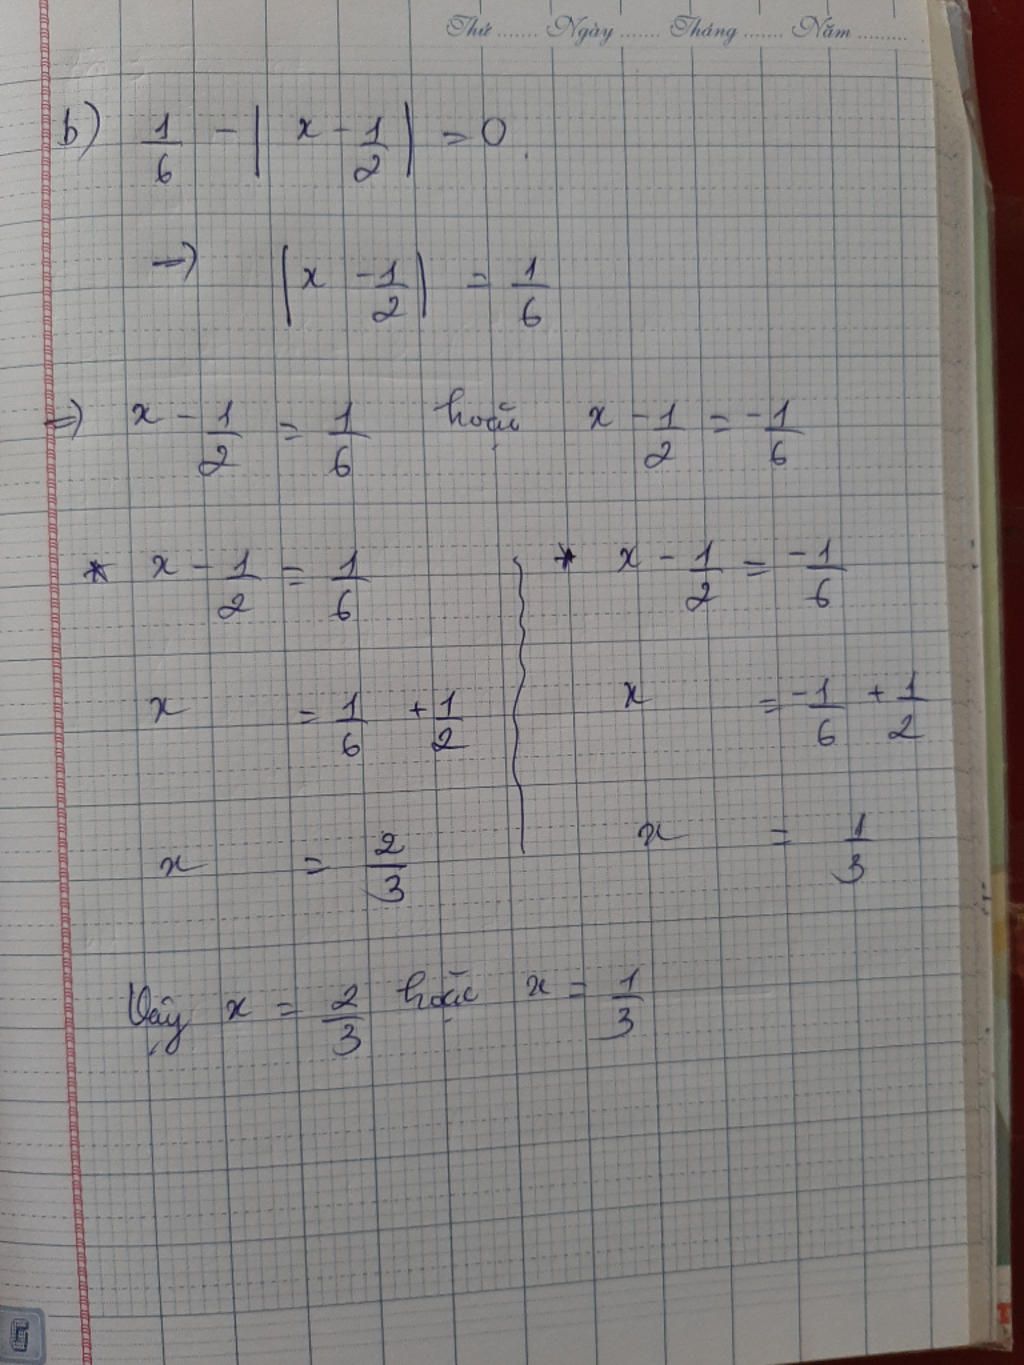 Thứ ....... Ngày ....... Tháng ....... Năm .........
b) 1/6 - | x - 1/2 | = 0
=> | x - 1/2 | = 1/6
=> x - 1/2 = 1/6 hoặc x - 1/2 = -1/6
* x - 1/2 = 1/6 * x - 1/2 = -1/6
x = 1/6 + 1/2 x = -1/6 + 1/2
x = 2/3 x = 1/3
Vậy x = 2/3 hoặc x = 1/3